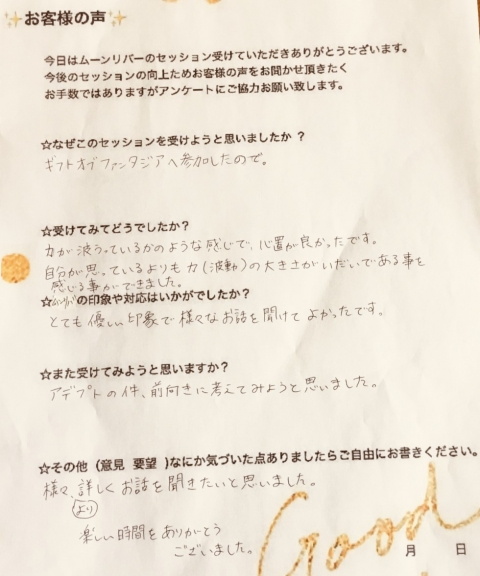 ✨お客様の声✨
今日はムーンリバーのセッション受けていただきありがとうございます。
今後のセッションの向上ためお客様の声をお聞かせ頂きたく
お手数ではありますがアンケートにご協力お願い致します。
☆なぜこのセッションを受けようと思いましたか？
ギフトオブファンタジアへ参加したので。
☆受けてみてどうでしたか？
力が波うっているかのような感じで、心置が良かったです。
自分が思っているよりも力(波動)の大きさがいだいである事を
感じる事ができました。
の印象や対応はいかがでしたか？
とても優しい印象で様々なお話を聞けてよかったです。
☆また受けてみようと思いますか？
アデプトの件、前向きに考えてみようと思いました。
☆その他（意見 要望 )なにか気づいた点ありましたらご自由にお書きください。
様々、詳しくお話を聞きたいと思いました。
より
楽しい時間をありがとう
ございました。
Good
月 日